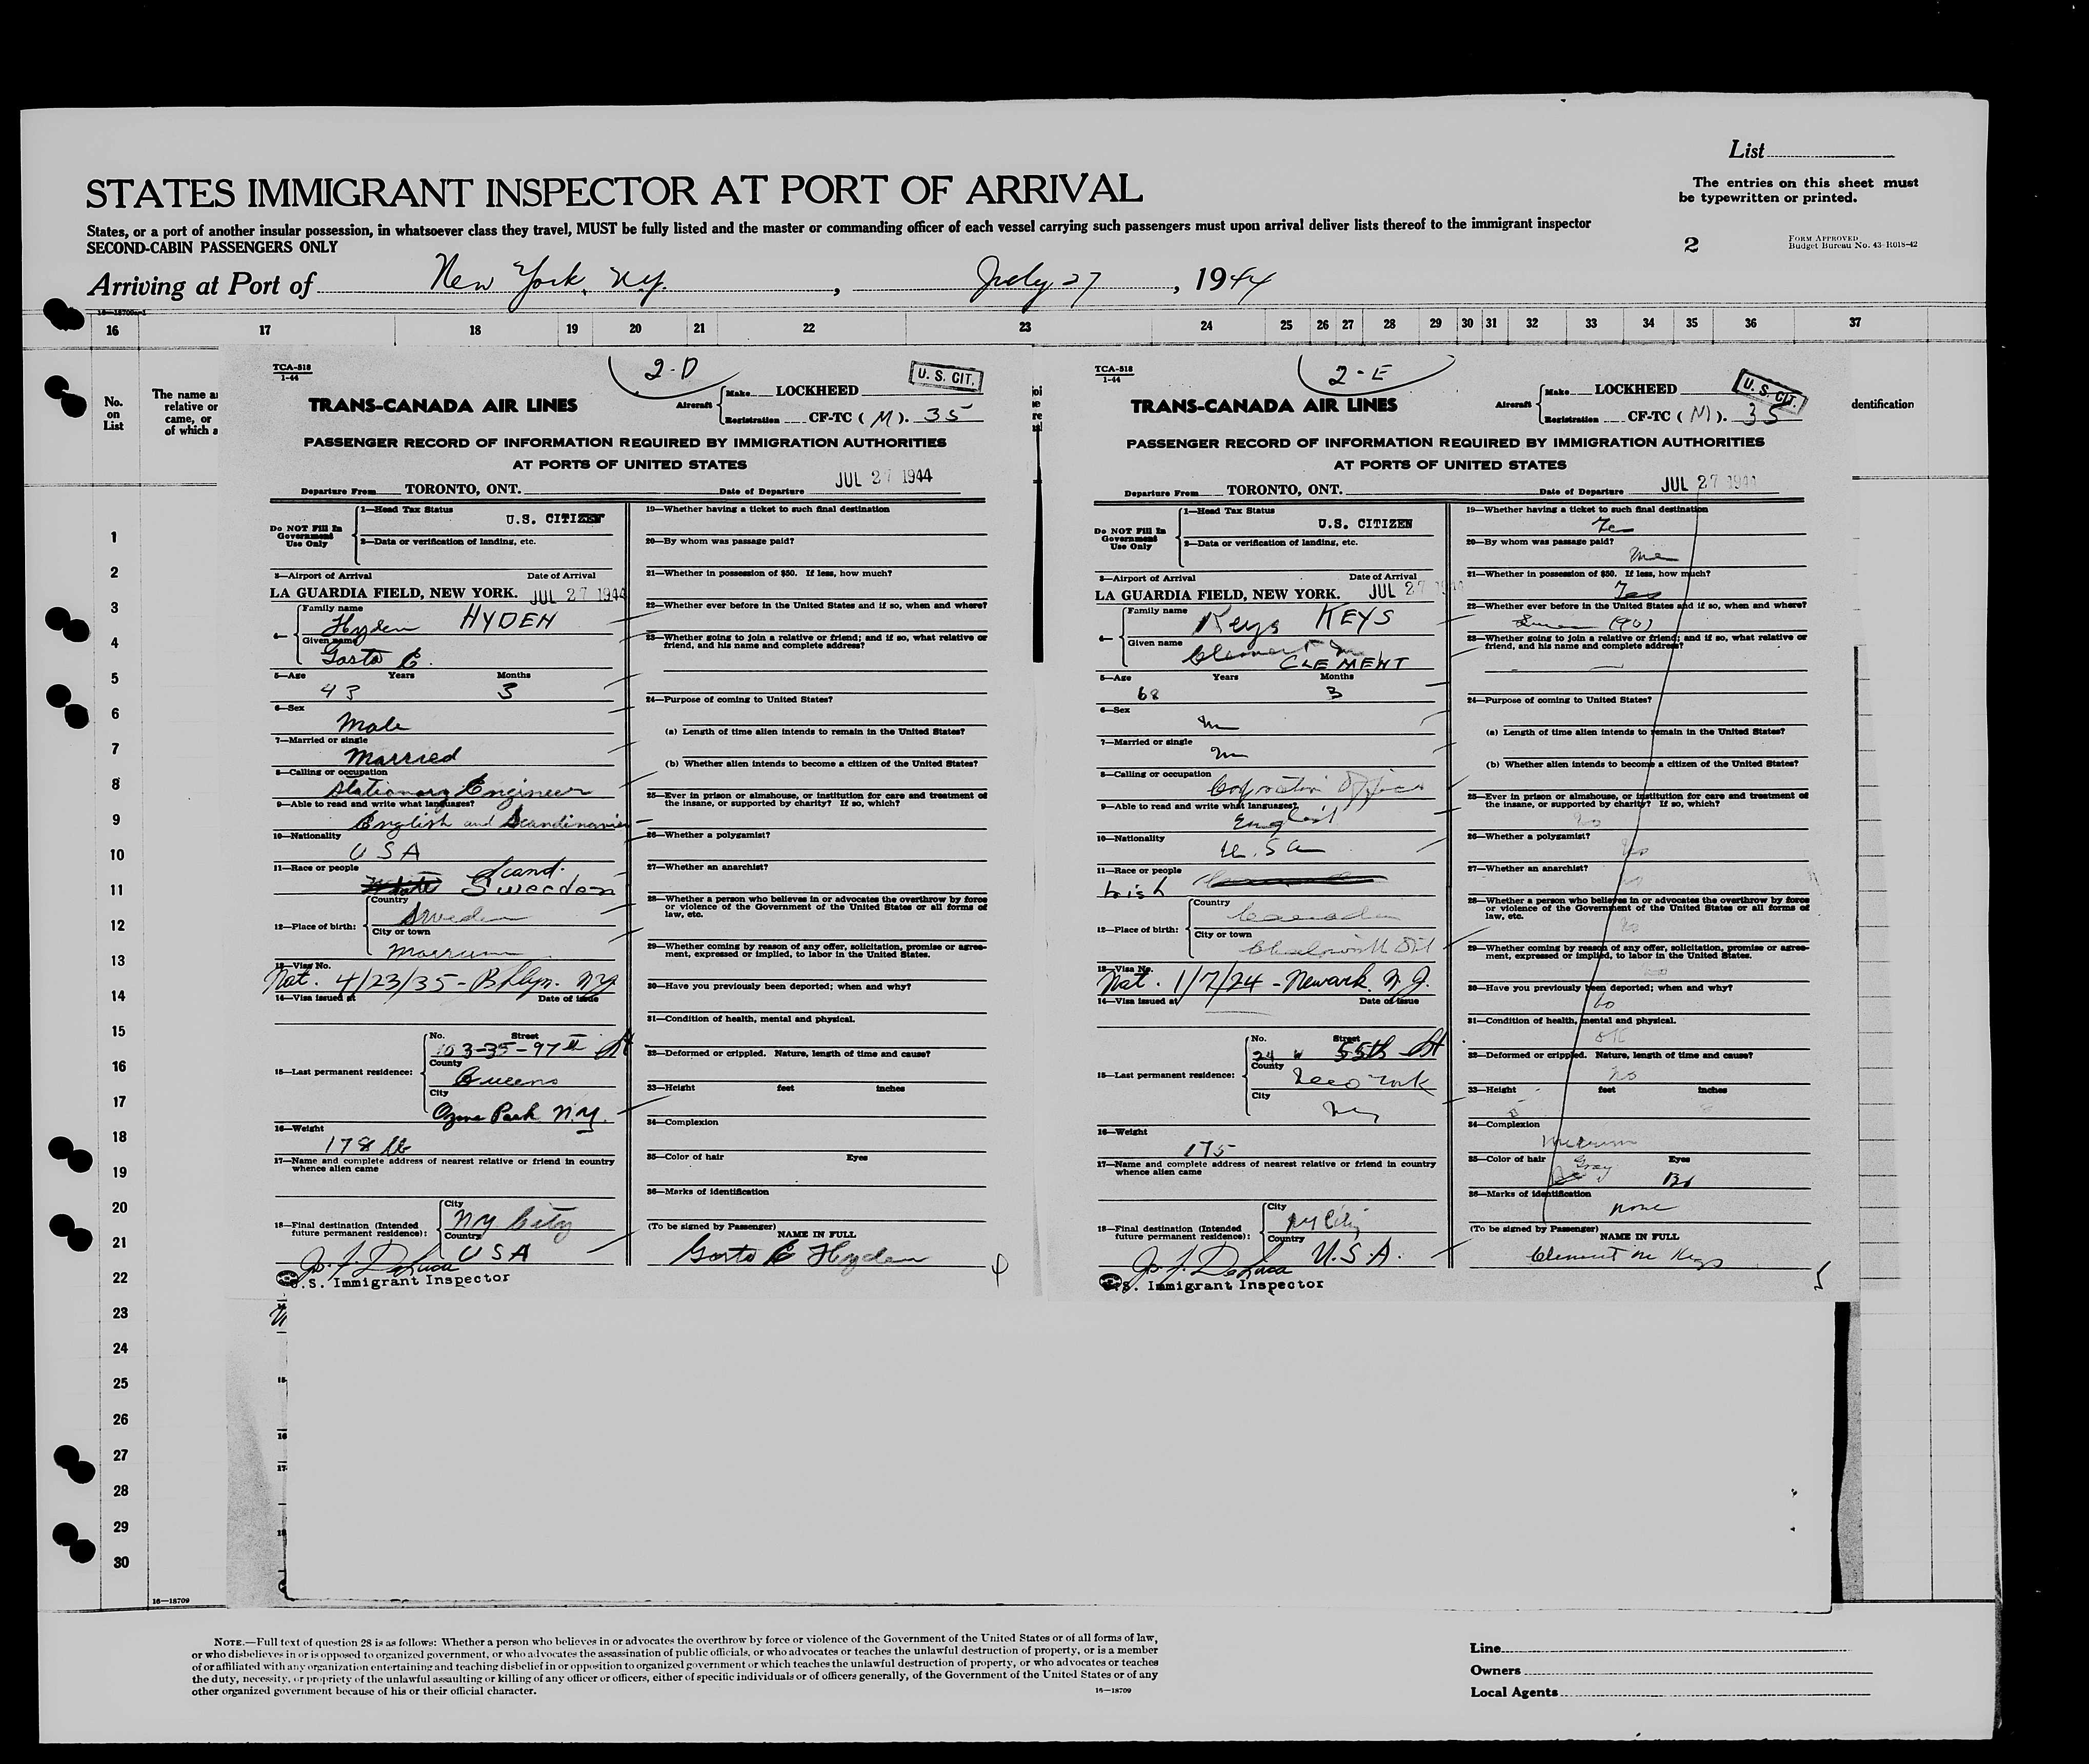 List
STATES IMMIGRANT INSPECTOR AT PORT OF ARRIVAL
The entries on this sheet must
be typewritten or printed.
States, or a port of another insular possession, in whatsoever class they travel, MUST be fully listed and the master or commanding officer of each vessel carrying such passengers must upon arrival deliver lists thereof to the immigrant inspector
SECOND-CABIN PASSENGERS ONLY
2
FORM APPROVED
Budget Bureau No. 43-R018-42
Arriving at Port of New York, N.Y., July 27, 1944
16 17 18 19 20 21 22 23 24 25 26 27 28 29 30 31 32 33 34 35 36 37
No.
on
List
The name a
relative or
came, or
of which a
dentification
1
2
3
4
5
6
7
8
9
10
11
12
13
14
15
16
17
18
19
20
21
22
23
24
25
26
27
28
29
30
16—18709
TCA-518
1-44
2-D
U. S. CIT.
TRANS-CANADA AIR LINES
Aircraft
Make LOCKHEED
Registration CF-TC (M). 35
PASSENGER RECORD OF INFORMATION REQUIRED BY IMMIGRATION AUTHORITIES
AT PORTS OF UNITED STATES
Departure From TORONTO, ONT. Date of Departure JUL 27 1944
Do NOT Fill In
Government
Use Only
1—Head Tax Status
U.S. CITIZEN
2—Data or verification of landing, etc.
3—Airport of Arrival Date of Arrival
LA GUARDIA FIELD, NEW YORK. JUL 27 1944
4—
Family name
Hyden HYDEN
Given name
Gosta E.
5—Age Years Months
43 3
6—Sex
Male
7—Married or single
Married
8—Calling or occupation
Stationary Engineer
9—Able to read and write what languages?
English and Scandinavian
10—Nationality
USA
11—Race or people
Scand.
White Sweeden
12—Place of birth:
Country
Sweden
City or town
Morrum
13—Visa No.
Nat. 4/23/35 - Bklyn. N.Y.
14—Visa issued at Date of issue
15—Last permanent residence:
No. Street
103-35-97th St
County
Queens
City
Ozone Park N.Y.
16—Weight
178 lb
17—Name and complete address of nearest relative or friend in country
whence alien came
18—Final destination (Intended
future permanent residence):
City
N.Y. City
Country
USA
Jos. J. DeLuca
U.S. Immigrant Inspector
19—Whether having a ticket to such final destination
20—By whom was passage paid?
21—Whether in possession of $50. If less, how much?
22—Whether ever before in the United States and if so, when and where?
23—Whether going to join a relative or friend; and if so, what relative or
friend, and his name and complete address?
24—Purpose of coming to United States?
(a) Length of time alien intends to remain in the United States?
(b) Whether alien intends to become a citizen of the United States?
25—Ever in prison or almshouse, or institution for care and treatment of
the insane, or supported by charity? If so, which?
26—Whether a polygamist?
27—Whether an anarchist?
28—Whether a person who believes in or advocates the overthrow by force
or violence of the Government of the United States or all forms of
law, etc.
29—Whether coming by reason of any offer, solicitation, promise or agree-
ment, expressed or implied, to labor in the United States.
30—Have you previously been deported; when and why?
31—Condition of health, mental and physical.
32—Deformed or crippled. Nature, length of time and cause?
33—Height feet inches
34—Complexion
35—Color of hair Eyes
36—Marks of identification
(To be signed by Passenger)
NAME IN FULL
Gosta E Hyden
TCA-518
1-44
2-E
U. S. CIT.
TRANS-CANADA AIR LINES
Aircraft
Make LOCKHEED
Registration CF-TC (M). 35
PASSENGER RECORD OF INFORMATION REQUIRED BY IMMIGRATION AUTHORITIES
AT PORTS OF UNITED STATES
Departure From TORONTO, ONT. Date of Departure JUL 27 1944
Do NOT Fill In
Government
Use Only
1—Head Tax Status
U.S. CITIZEN
2—Data or verification of landing, etc.
3—Airport of Arrival Date of Arrival
LA GUARDIA FIELD, NEW YORK. JUL 27 1944
4—
Family name
Keys KEYS
Given name
Clement M
CLEMENT
5—Age Years Months
68 3
6—Sex
M
7—Married or single
M
8—Calling or occupation
Corporation Officer
9—Able to read and write what languages?
English
10—Nationality
U.S.A
11—Race or people
Irish
12—Place of birth:
Country
Canada
City or town
Chatsworth Ont
13—Visa No.
Nat. 1/7/24 - Newark. N.J.
14—Visa issued at Date of issue
15—Last permanent residence:
No. Street
24 W 55th St
County
New York
City
NY
16—Weight
175
17—Name and complete address of nearest relative or friend in country
whence alien came
18—Final destination (Intended
future permanent residence):
City
NY City
Country
U.S.A.
Jos. J. DeLuca
U.S. Immigrant Inspector
19—Whether having a ticket to such final destination
Yes
20—By whom was passage paid?
Me
21—Whether in possession of $50. If less, how much?
Yes
22—Whether ever before in the United States and if so, when and where?
Since 1901
23—Whether going to join a relative or friend; and if so, what relative or
friend, and his name and complete address?
24—Purpose of coming to United States?
(a) Length of time alien intends to remain in the United States?
(b) Whether alien intends to become a citizen of the United States?
25—Ever in prison or almshouse, or institution for care and treatment of
the insane, or supported by charity? If so, which?
No
26—Whether a polygamist?
No
27—Whether an anarchist?
No
28—Whether a person who believes in or advocates the overthrow by force
or violence of the Government of the United States or all forms of
law, etc.
No
29—Whether coming by reason of any offer, solicitation, promise or agree-
ment, expressed or implied, to labor in the United States.
No
30—Have you previously been deported; when and why?
No
31—Condition of health, mental and physical.
OK
32—Deformed or crippled. Nature, length of time and cause?
No
33—Height feet inches
34—Complexion
Medium
35—Color of hair Eyes
Gray
36—Marks of identification
None
(To be signed by Passenger)
NAME IN FULL
Clement M Keys
NOTE.—Full text of question 28 is as follows: Whether a person who believes in or advocates the overthrow by force or violence of the Government of the United States or of all forms of law,
or who disbelieves in or is opposed to organized government, or who advocates the assassination of public officials, or who advocates or teaches the unlawful destruction of property, or is a member
of or affiliated with any organization entertaining and teaching disbelief in or opposition to organized government or which teaches the unlawful destruction of property, or who advocates or teaches
the duty, necessity, or propriety of the unlawful assaulting or killing of any officer or officers, either of specific individuals or of officers generally, of the Government of the United States or of any
other organized government because of his or their official character.
16—18709
Line
Owners
Local Agents